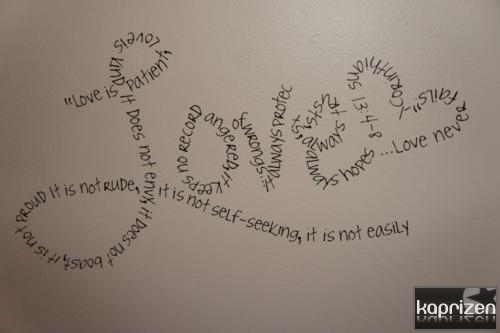 "Love is patient, love is kind It does not envy, it does not boast, it is not proud It is not rude, it is not self-seeking, it is not easily
angered, it keeps no record of wrongs...it always protects, always trusts, always hopes ...Love never fails"~1 Corinthians 13:4-8
kaprizen